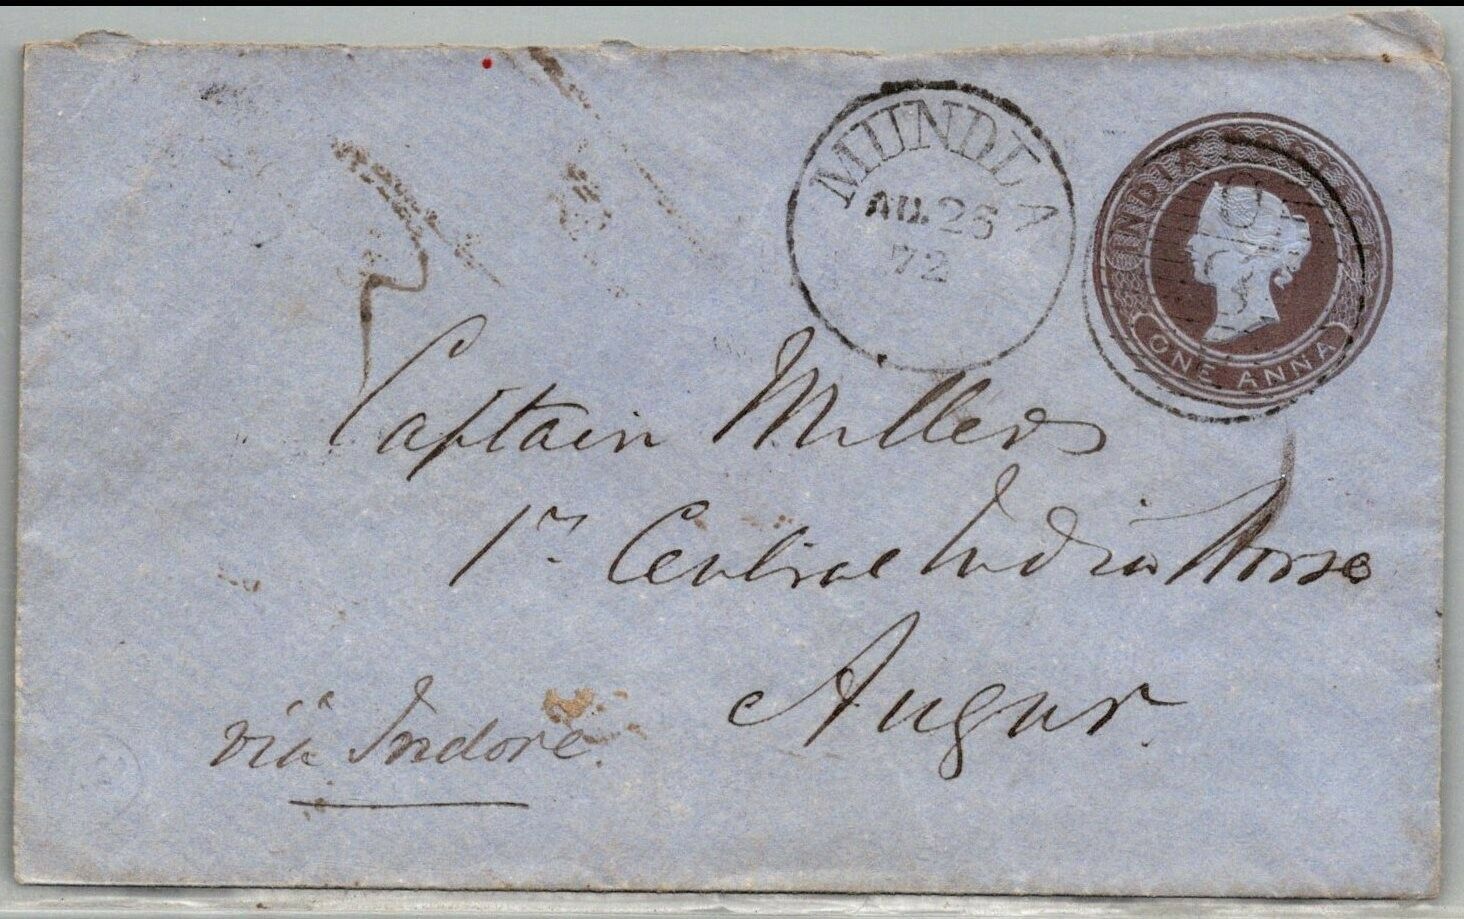 MUNDLA
AU. 26
72
INDIA
ONE ANNA
Captain Millers
1st Central India Horse
Augur
viâ Indore.